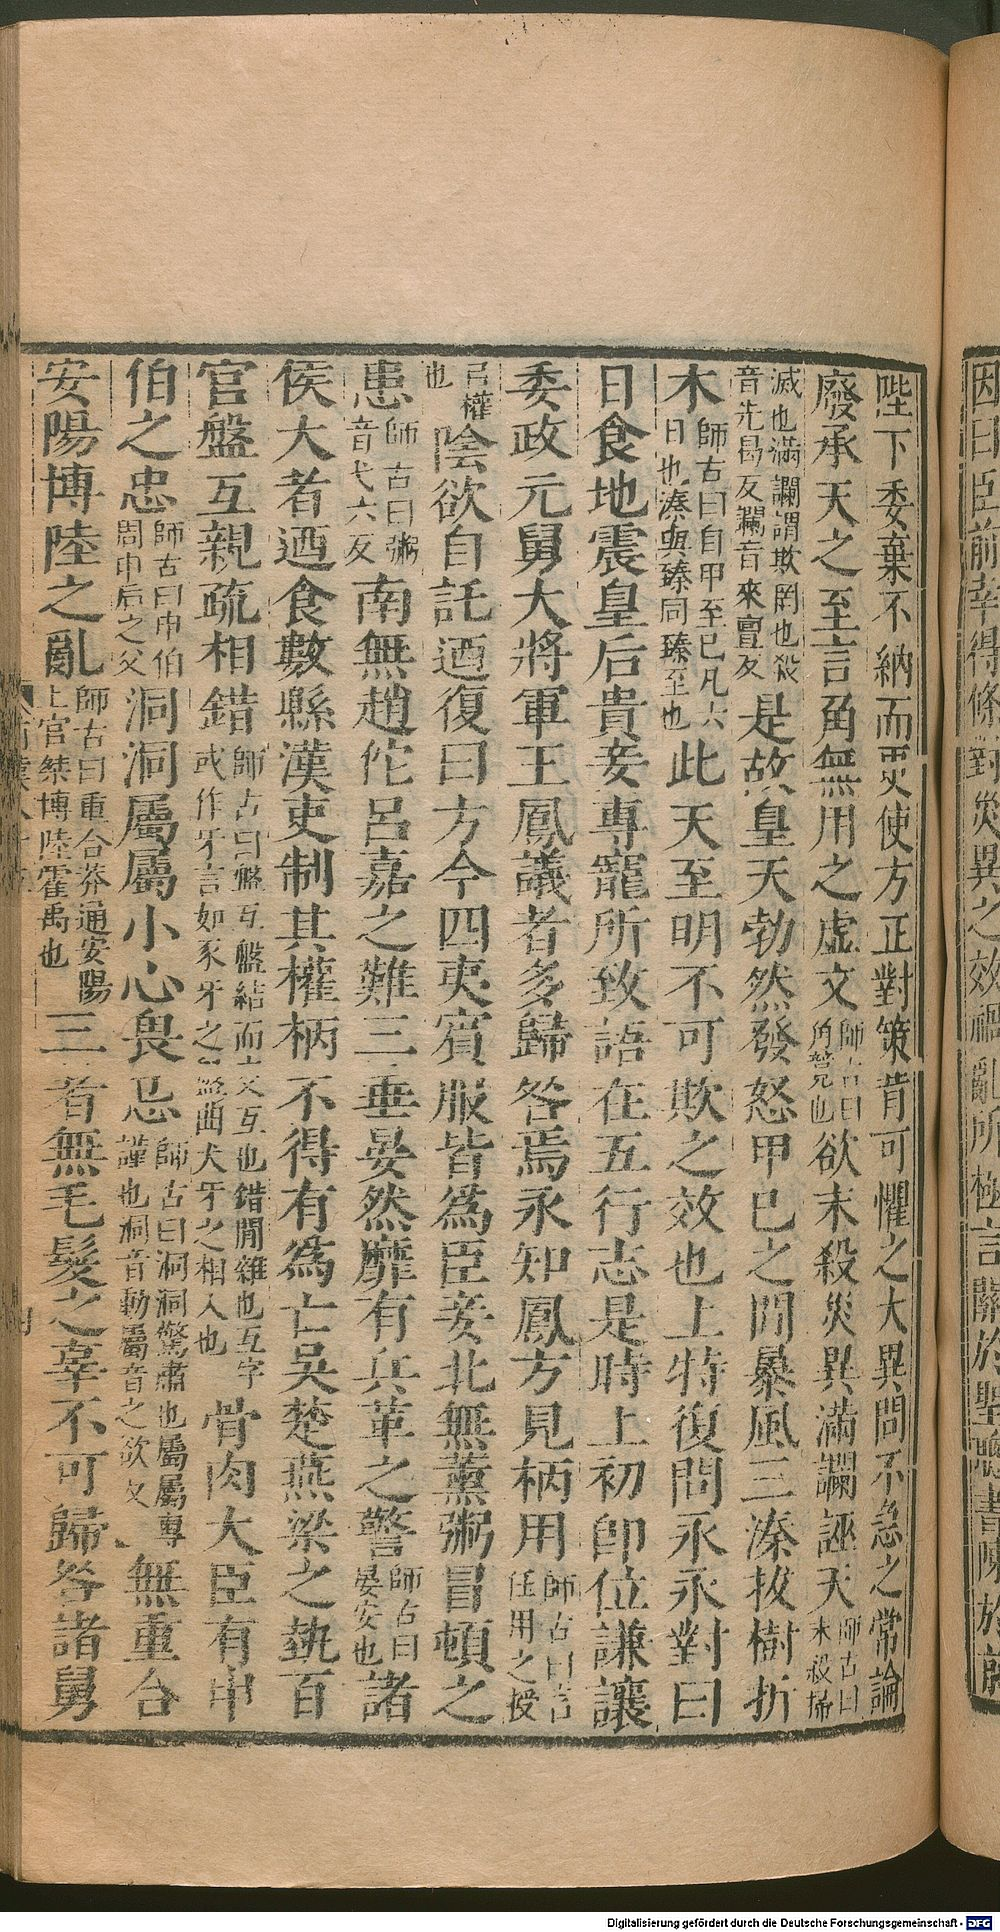 因曰臣前幸得條對災異之效禍亂所極言關於聖聰書陳於前
陛下委棄不納而更使方正對策背可懼之大異問不急之常論
廢承天之至言角無用之虛文師古曰角競也欲末殺災異滿讕誣天師古曰末殺掃
滅也滿讕謂欺罔也殺音先曷反讕音來亶反是故皇天勃然發怒甲已之間暴風三溱拔樹折
木師古曰自甲至已凡六日也溱與臻同臻至也此天至明不可欺之效也上特復問永永對曰
日食地震皇后貴妾專寵所致語在五行志是時上初即位謙讓
委政元舅大將軍王鳳議者多歸咎焉永知鳳方見柄用師古曰言任用之授
㠯權也陰欲自託迺復曰方今四夷賓服皆爲臣妾北無薰粥冒頓之
患師古曰粥音弋六反南無趙佗呂嘉之難三垂晏然靡有兵革之警師古曰晏安也諸
侯大者迺食數縣漢吏制其權柄不得有爲亡吳楚燕梁之埶百
官盤互親疏相錯師古曰盤互盤結而交互也錯閒雜也互字或作牙言如豕牙之盤曲犬牙之相入也骨肉大臣有申
伯之忠師古曰申伯周申后之父洞洞屬屬小心畏忌師古曰洞洞驚肅也屬屬專謹也洞音動屬音之欲反無重合
安陽博陸之亂師古曰重合莽通安陽上官桀博陸霍禹也三者無毛髮之辜不可歸咎諸舅
Digitalisierung gefördert durch die Deutsche Forschungsgemeinschaft - DFG